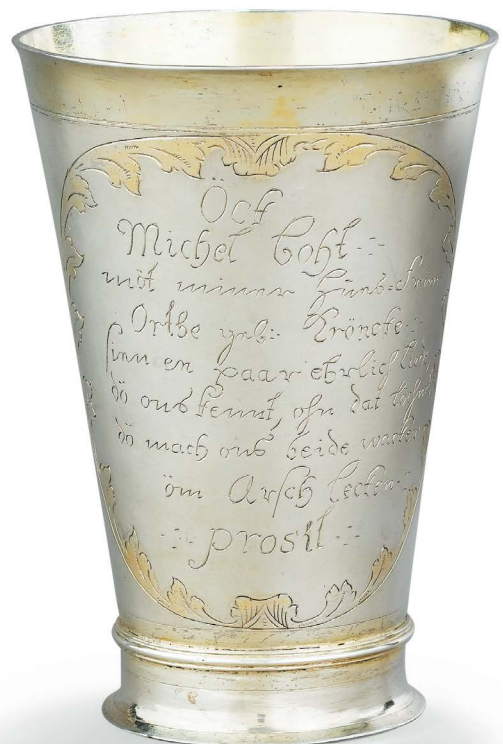 Öck
Michel Boht
möt miner
Orthe geb: Kröncke
sinn en paar ehrlich
dö ons kennt, ohn dat
dö mach ons beide
öm Arsch lecken
prosit